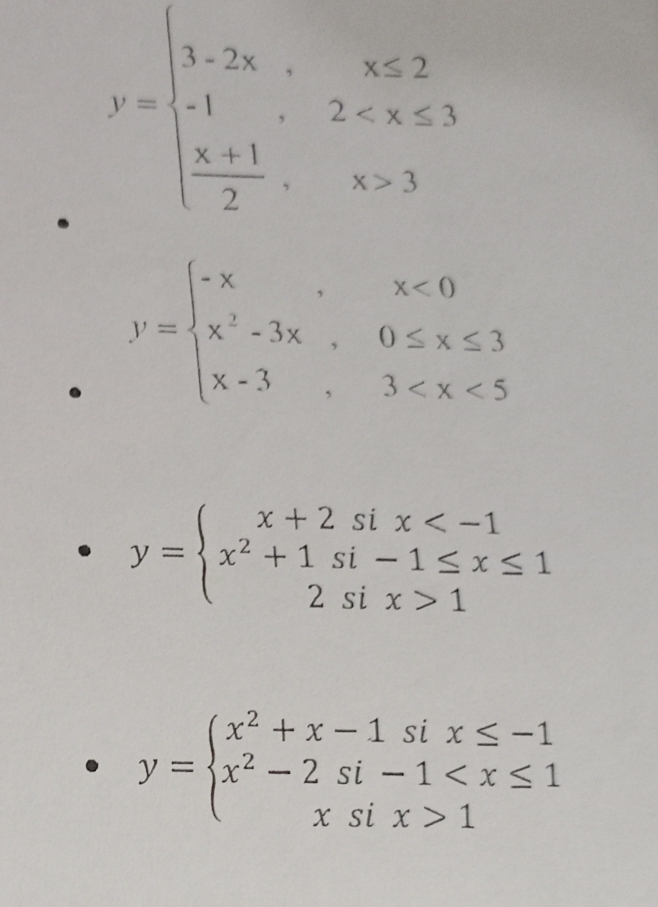 y = { 3 - 2x , x ≤ 2
-1 , 2 < x ≤ 3
x + 1 / 2 , x > 3
•
y = { - x , x < 0
x² - 3x , 0 ≤ x ≤ 3
x - 3 , 3 < x < 5
•
• y = { x + 2 si x < −1
x² + 1 si − 1 ≤ x ≤ 1
2 si x > 1
• y = { x² + x − 1 si x ≤ −1
x² − 2 si − 1 < x ≤ 1
x si x > 1